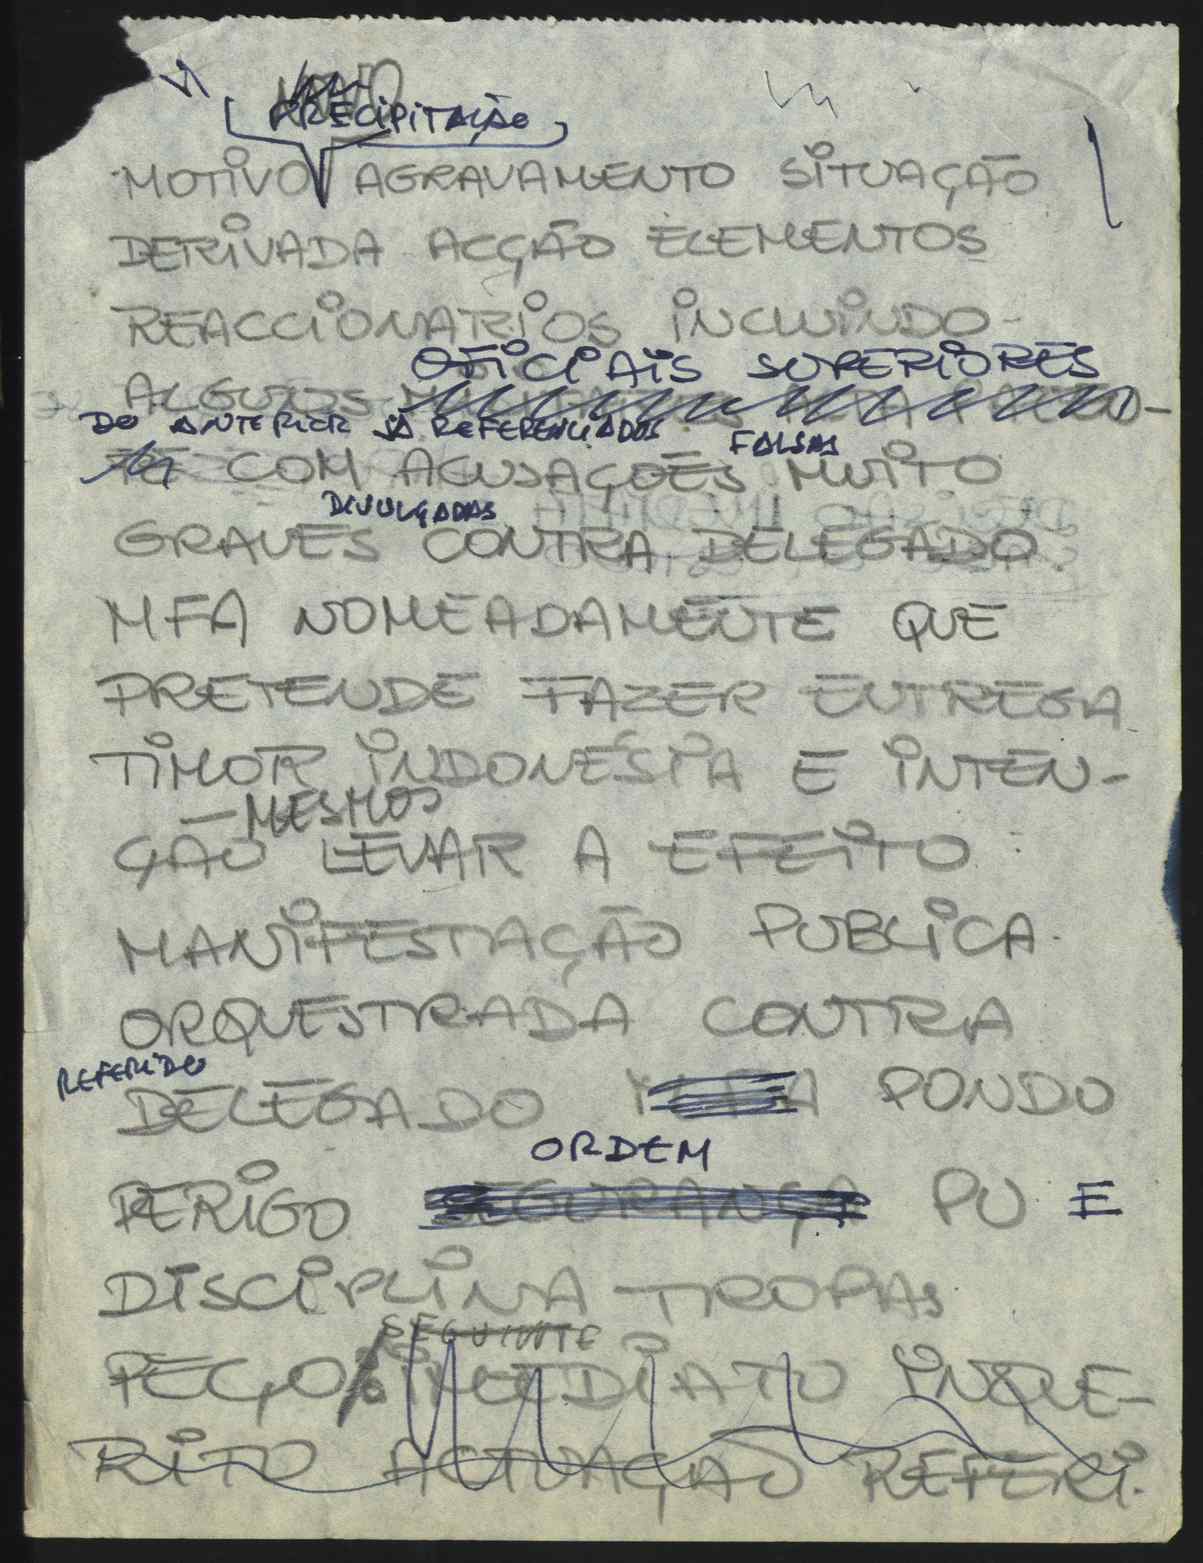 PRECIPITAÇÃO
MOTIVO AGRAVAMENTO SITUAÇÃO
DERIVADA ACÇÃO ELEMENTOS
REACCIONARIOS INCLUINDO
OFICIAIS SUPERIORES
ALGUNS
DO ANTERIOR JÁ REFERENCIADOS FALSAS
COM ACUSAÇÕES MUITO
DIVULGADAS
GRAVES CONTRA DELEGADO
MFA NOMEADAMENTE QUE
PRETENDE FAZER ENTREGA
TIMOR INDONÉSIA E INTEN-
— MESMOS
ÇÃO LEVAR A EFEITO
MANIFESTAÇÃO PUBLICA
ORQUESTRADA CONTRA
REFERIDO
DELEGADO MFA PONDO
ORDEM
PERIGO SEGURANÇA PU E
DISCIPLINA TROPAS
SEGUINTE
PEÇO IMEDIATO INQUE-
RITO ACTUAÇÃO REFERI.